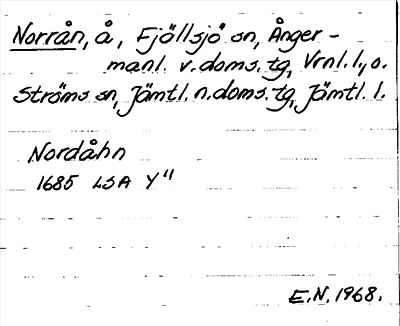 Norrån, å, Fjällsjö sn, Ånger-
manl. v. doms. tg, Vrnl. l., o.
Ströms sn, Jämtl. n. doms. tg, Jämtl. l.
Nordåhn
1685 LSA Y"
E.N. 1968.